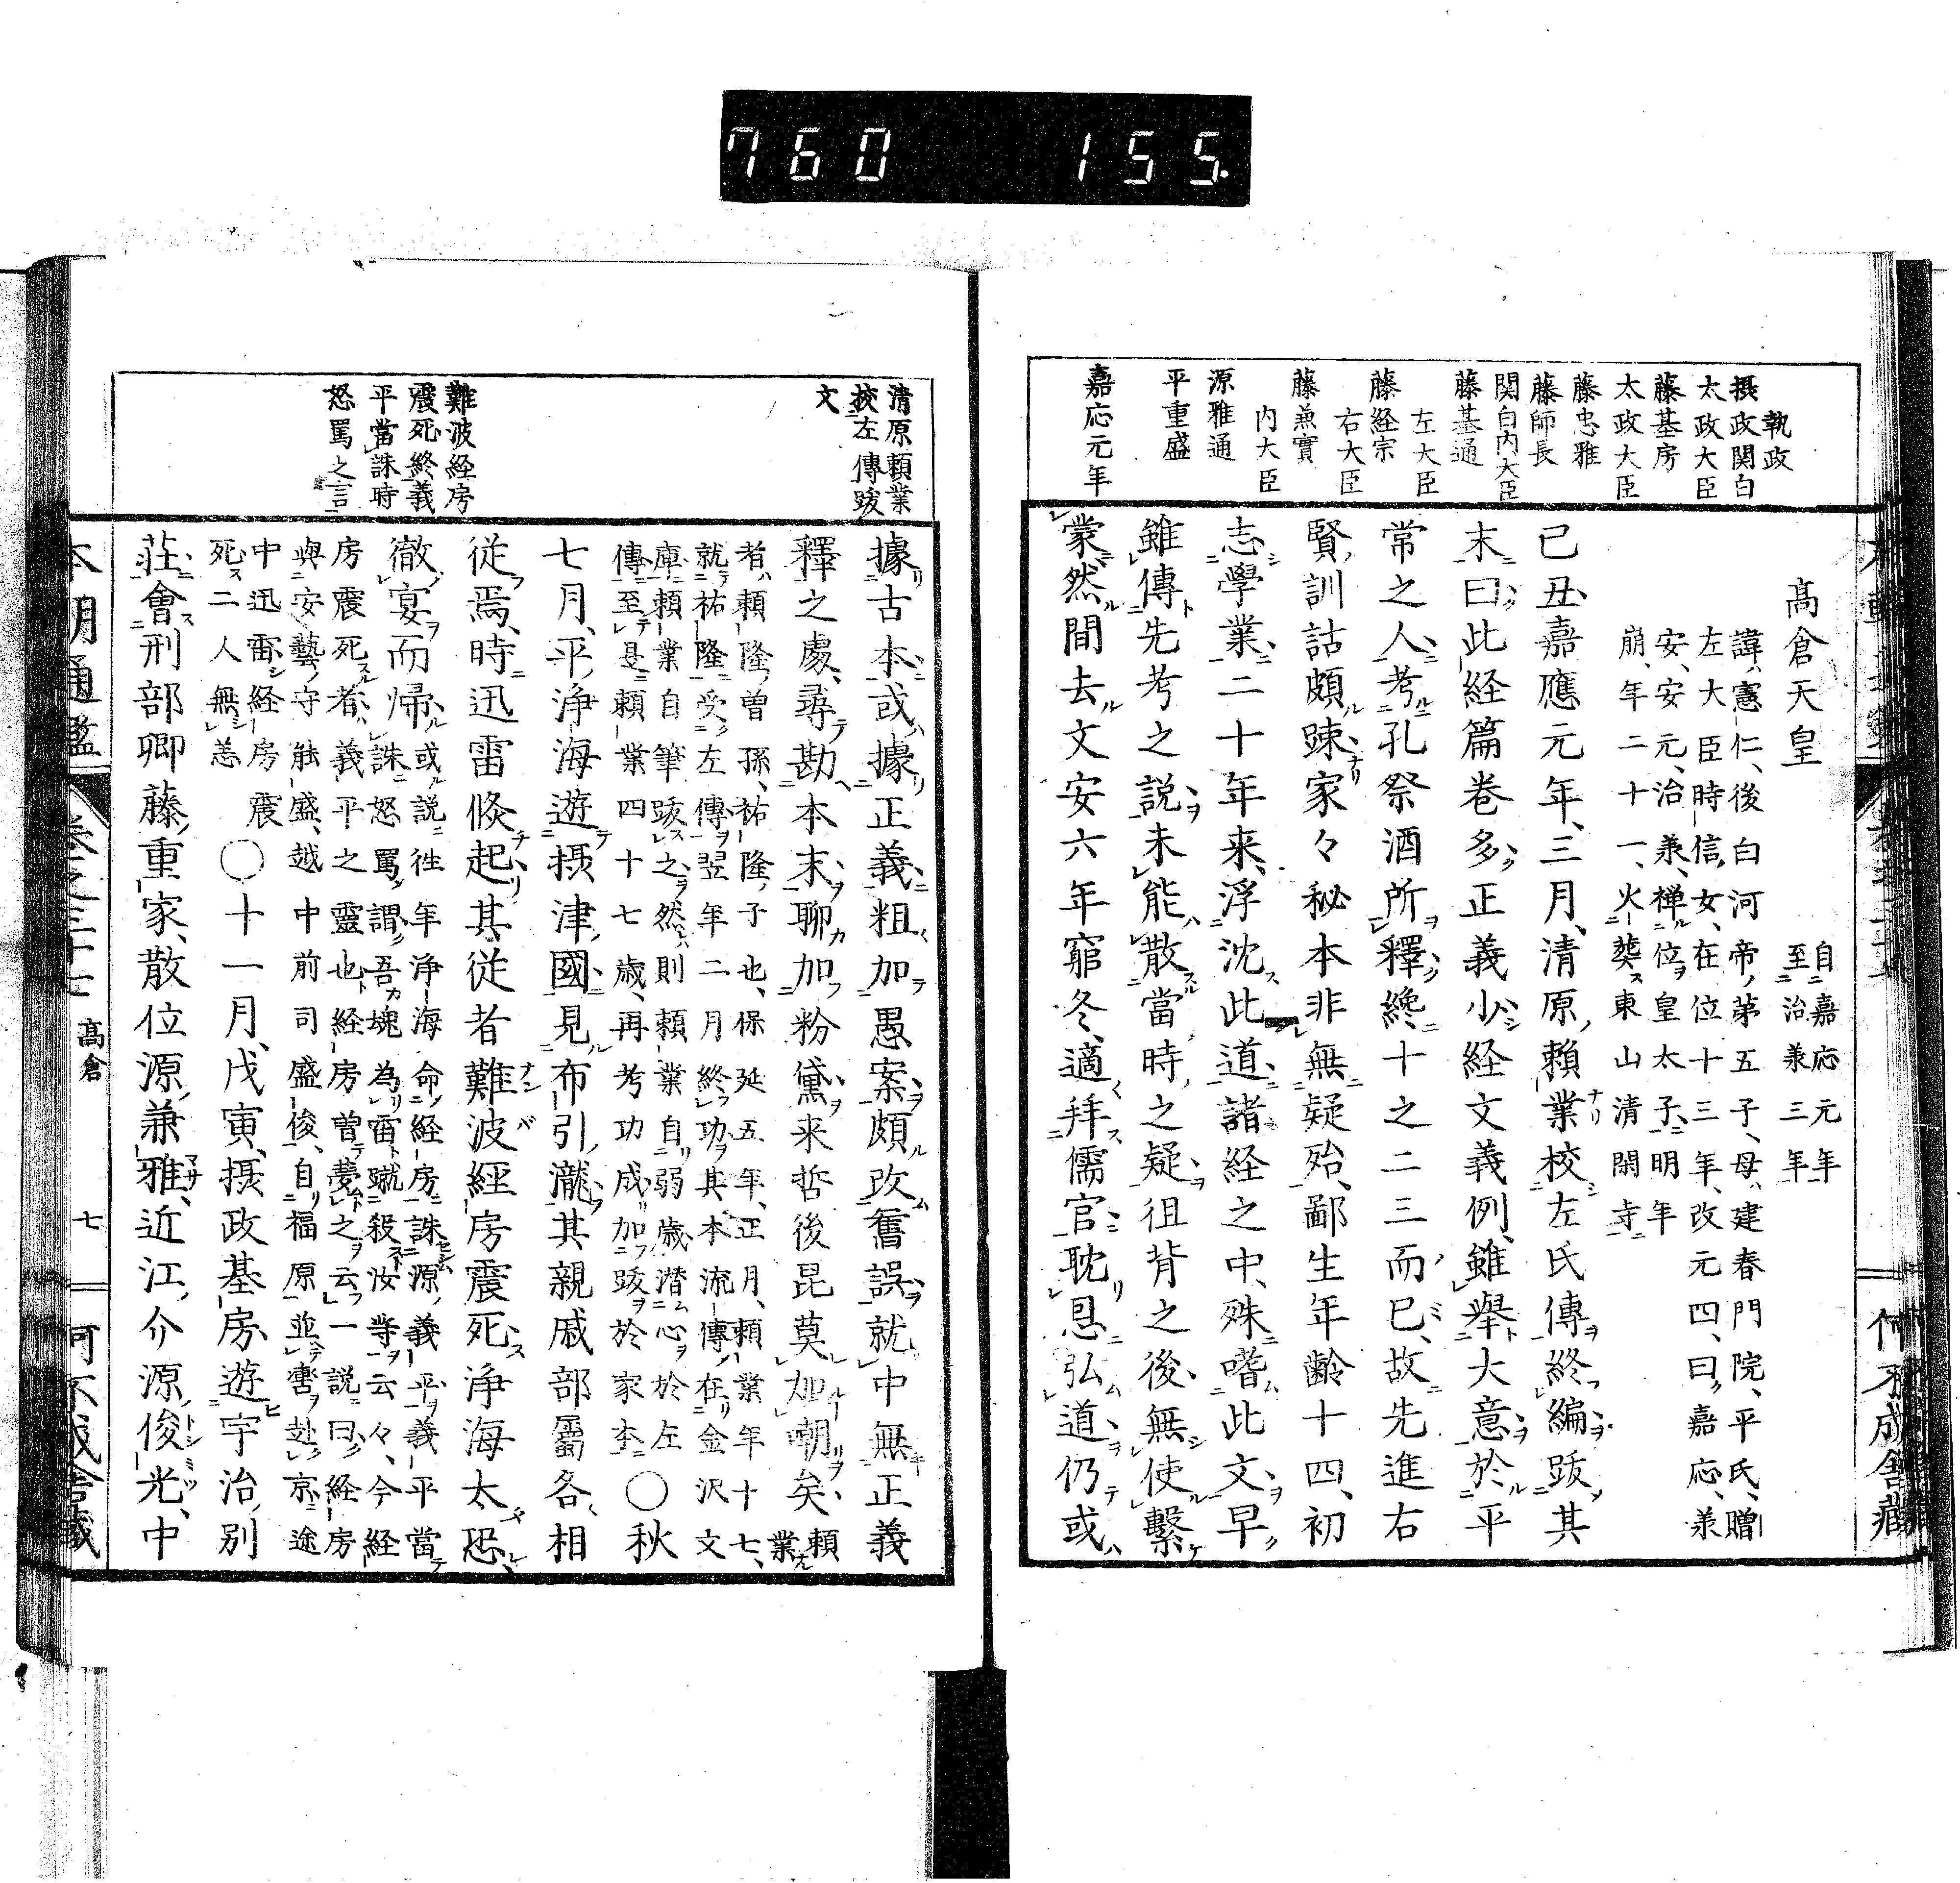 760 155
執政
摂政関白
太政大臣
藤基房
太政大臣
藤忠雅
藤師長
関白内大臣
藤基通
左大臣
藤経宗
右大臣
藤兼實
内大臣
源雅通
平重盛
嘉応元年
高倉天皇
自嘉応元年
至治承三年
諱憲仁、後白河帝第五子、母建春門院、平氏、贈
左大臣時信女、在位十三年、改元四、曰嘉応、承
安、安元、治承、禅位皇太子、明年
崩、年二十一、火葬東山清閑寺
己丑嘉應元年、三月、清原頼業校左氏傳終編跋其
末曰、此経篇巻多、正義小、経文義例、雖舉大意於平
常之人、考孔祭酒所釋、纔十之二三而已、故先進右
賢訓詁頗踈、家々秘本非無疑殆、鄙生年齢十四、初
志學業、二十年来、浮沈此道、諸経之中、殊嗜此文、早
雖傳先考之説、未能散當時之疑、徂背之後、無使繫
蒙、然間去文安六年窮冬、適拜儒官、耽恩弘道、仍或
清原頼業
挍左傳跋
文
據古本、或據正義、粗加愚案、頗改舊誤、就中無正義
釋之處、尋勘本末、聊加粉黛、来哲後昆莫加嘲矣、頼業
者、頼隆曽孫、祐隆子也、保延五年、正月、頼業年十七、
就祐隆受左傳、翌年二月終功、其本流傳、在金沢文
庫、頼業自筆跋之、然則頼業自弱歳潜心於左
傳、至是頼業四十七歳、再考功成、加跋於家本 ○秋
七月、平浄海遊摂津國、見布引瀧、其親戚部屬各相
從焉、時迅雷倏起、其從者難波經房震死、浄海太恐、
徹宴而帰、或説往年浄海命経房誅源義平、義平當
誅、怒罵謂、吾塊為雷蹴殺汝等云々、今経
房震死者、義平之靈也、経房曽夢之云、一説曰、経房
與安藝守能盛、越中前司盛俊、自福原並轡赴京、途
中迅雷、経房震
死、二人無恙 ○十一月、戊寅、摂政基房遊宇治別
莊、會刑部卿藤重家、散位源兼雅、近江介源俊光、中
難波経房
震死終義
平當誅時
怒罵之言
本朝通鑑 卷之三十七 高倉 七